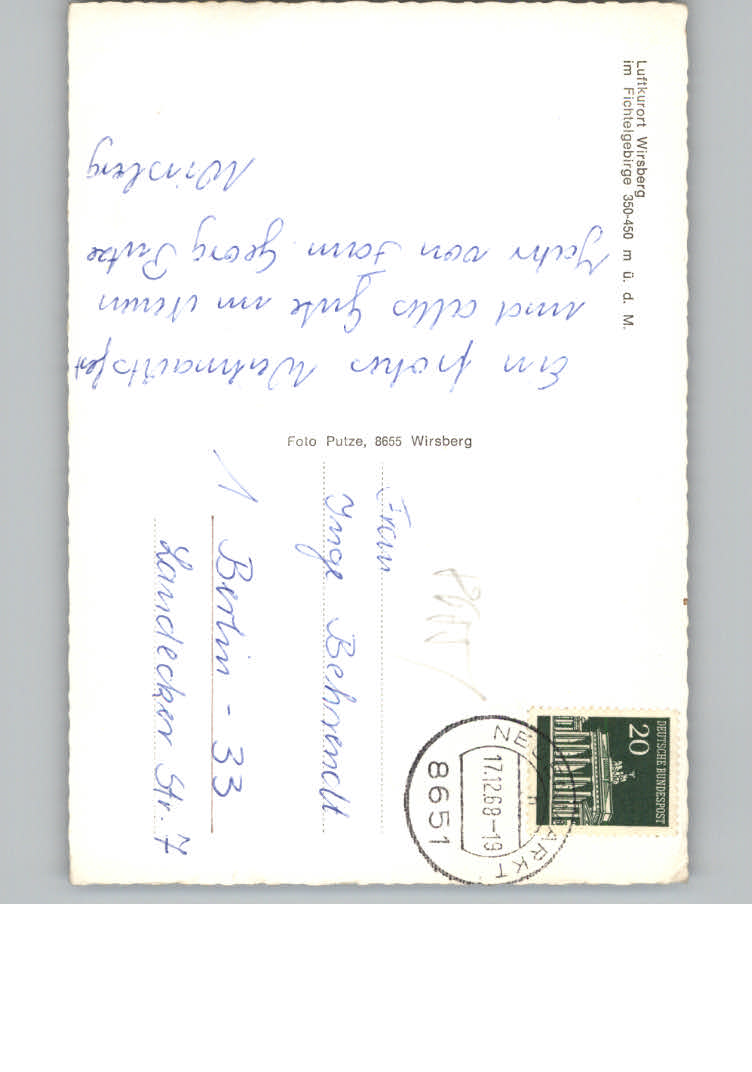 Luftkurort Wirsberg
im Fichtelgebirge 350-450 m ü. d. M.
Ein frohes Weihnachtsfest
und alles Gute im Neuen
Jahr von Fam Georg Putze
Wirsberg
Foto Putze, 8655 Wirsberg
Frau
Inge Behrendt
1 Berlin - 33
Landecker Str. 7
DEUTSCHE BUNDESPOST
20
17.12.68-19
8651